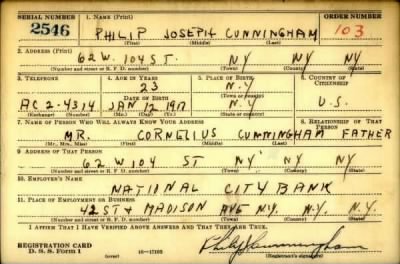 SERIAL NUMBER 1. NAME (Print) ORDER NUMBER
2546 PHILIP JOSEPH CUNNINGHAM 103
(First) (Middle) (Last)
2. ADDRESS (Print)
62 W. 104 ST. NY NY NY
(Number and street or R. F. D. number) (Town) (County) (State)
3. TELEPHONE 4. AGE IN YEARS 5. PLACE OF BIRTH 6. COUNTRY OF CITIZENSHIP
23 N.Y
DATE OF BIRTH (Town or county)
AC 2-4314 JAN 12 1917 N.Y U.S.
(Exchange) (Number) (Mo.) (Day) (Yr.) (State or country)
7. NAME OF PERSON WHO WILL ALWAYS KNOW YOUR ADDRESS 8. RELATIONSHIP OF THAT PERSON
MR. CORNELIUS CUNNINGHAM FATHER
(Mr., Mrs., Miss) (First) (Middle) (Last)
9. ADDRESS OF THAT PERSON
62 W 104 ST NY NY NY
(Number and street or R. F. D. number) (Town) (County) (State)
10. EMPLOYER'S NAME
NATIONAL CITY BANK
11. PLACE OF EMPLOYMENT OR BUSINESS
42 ST & MADISON AVE N.Y. N.Y. N.Y.
(Number and street or R. F. D. number) (Town) (County) (State)
I AFFIRM THAT I HAVE VERIFIED ABOVE ANSWERS AND THAT THEY ARE TRUE.
REGISTRATION CARD
D. S. S. Form 1 (over) 16—17105 Philip J Cunningham
(Registrant's signature)